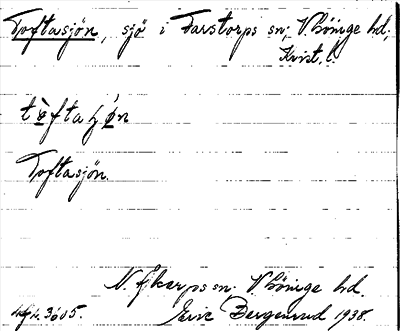 Toftasjön, sjö i Farstorps sn; V. Göinge hd;
Krist. l.
tòftaɧǿn
Toftasjön.
N. Åkarps sn. V. Göinge hd.
Uppt. 3605. Eric Bergenrud 1938.